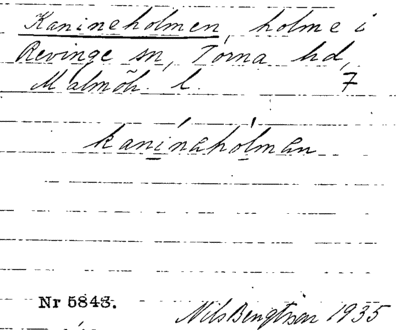 Kanineholmen, holme i
Revinge sn, Torna hd,
Malmöh. l. 7
kaninahólman
Nr 5843.
Nils Bengtsson 1935